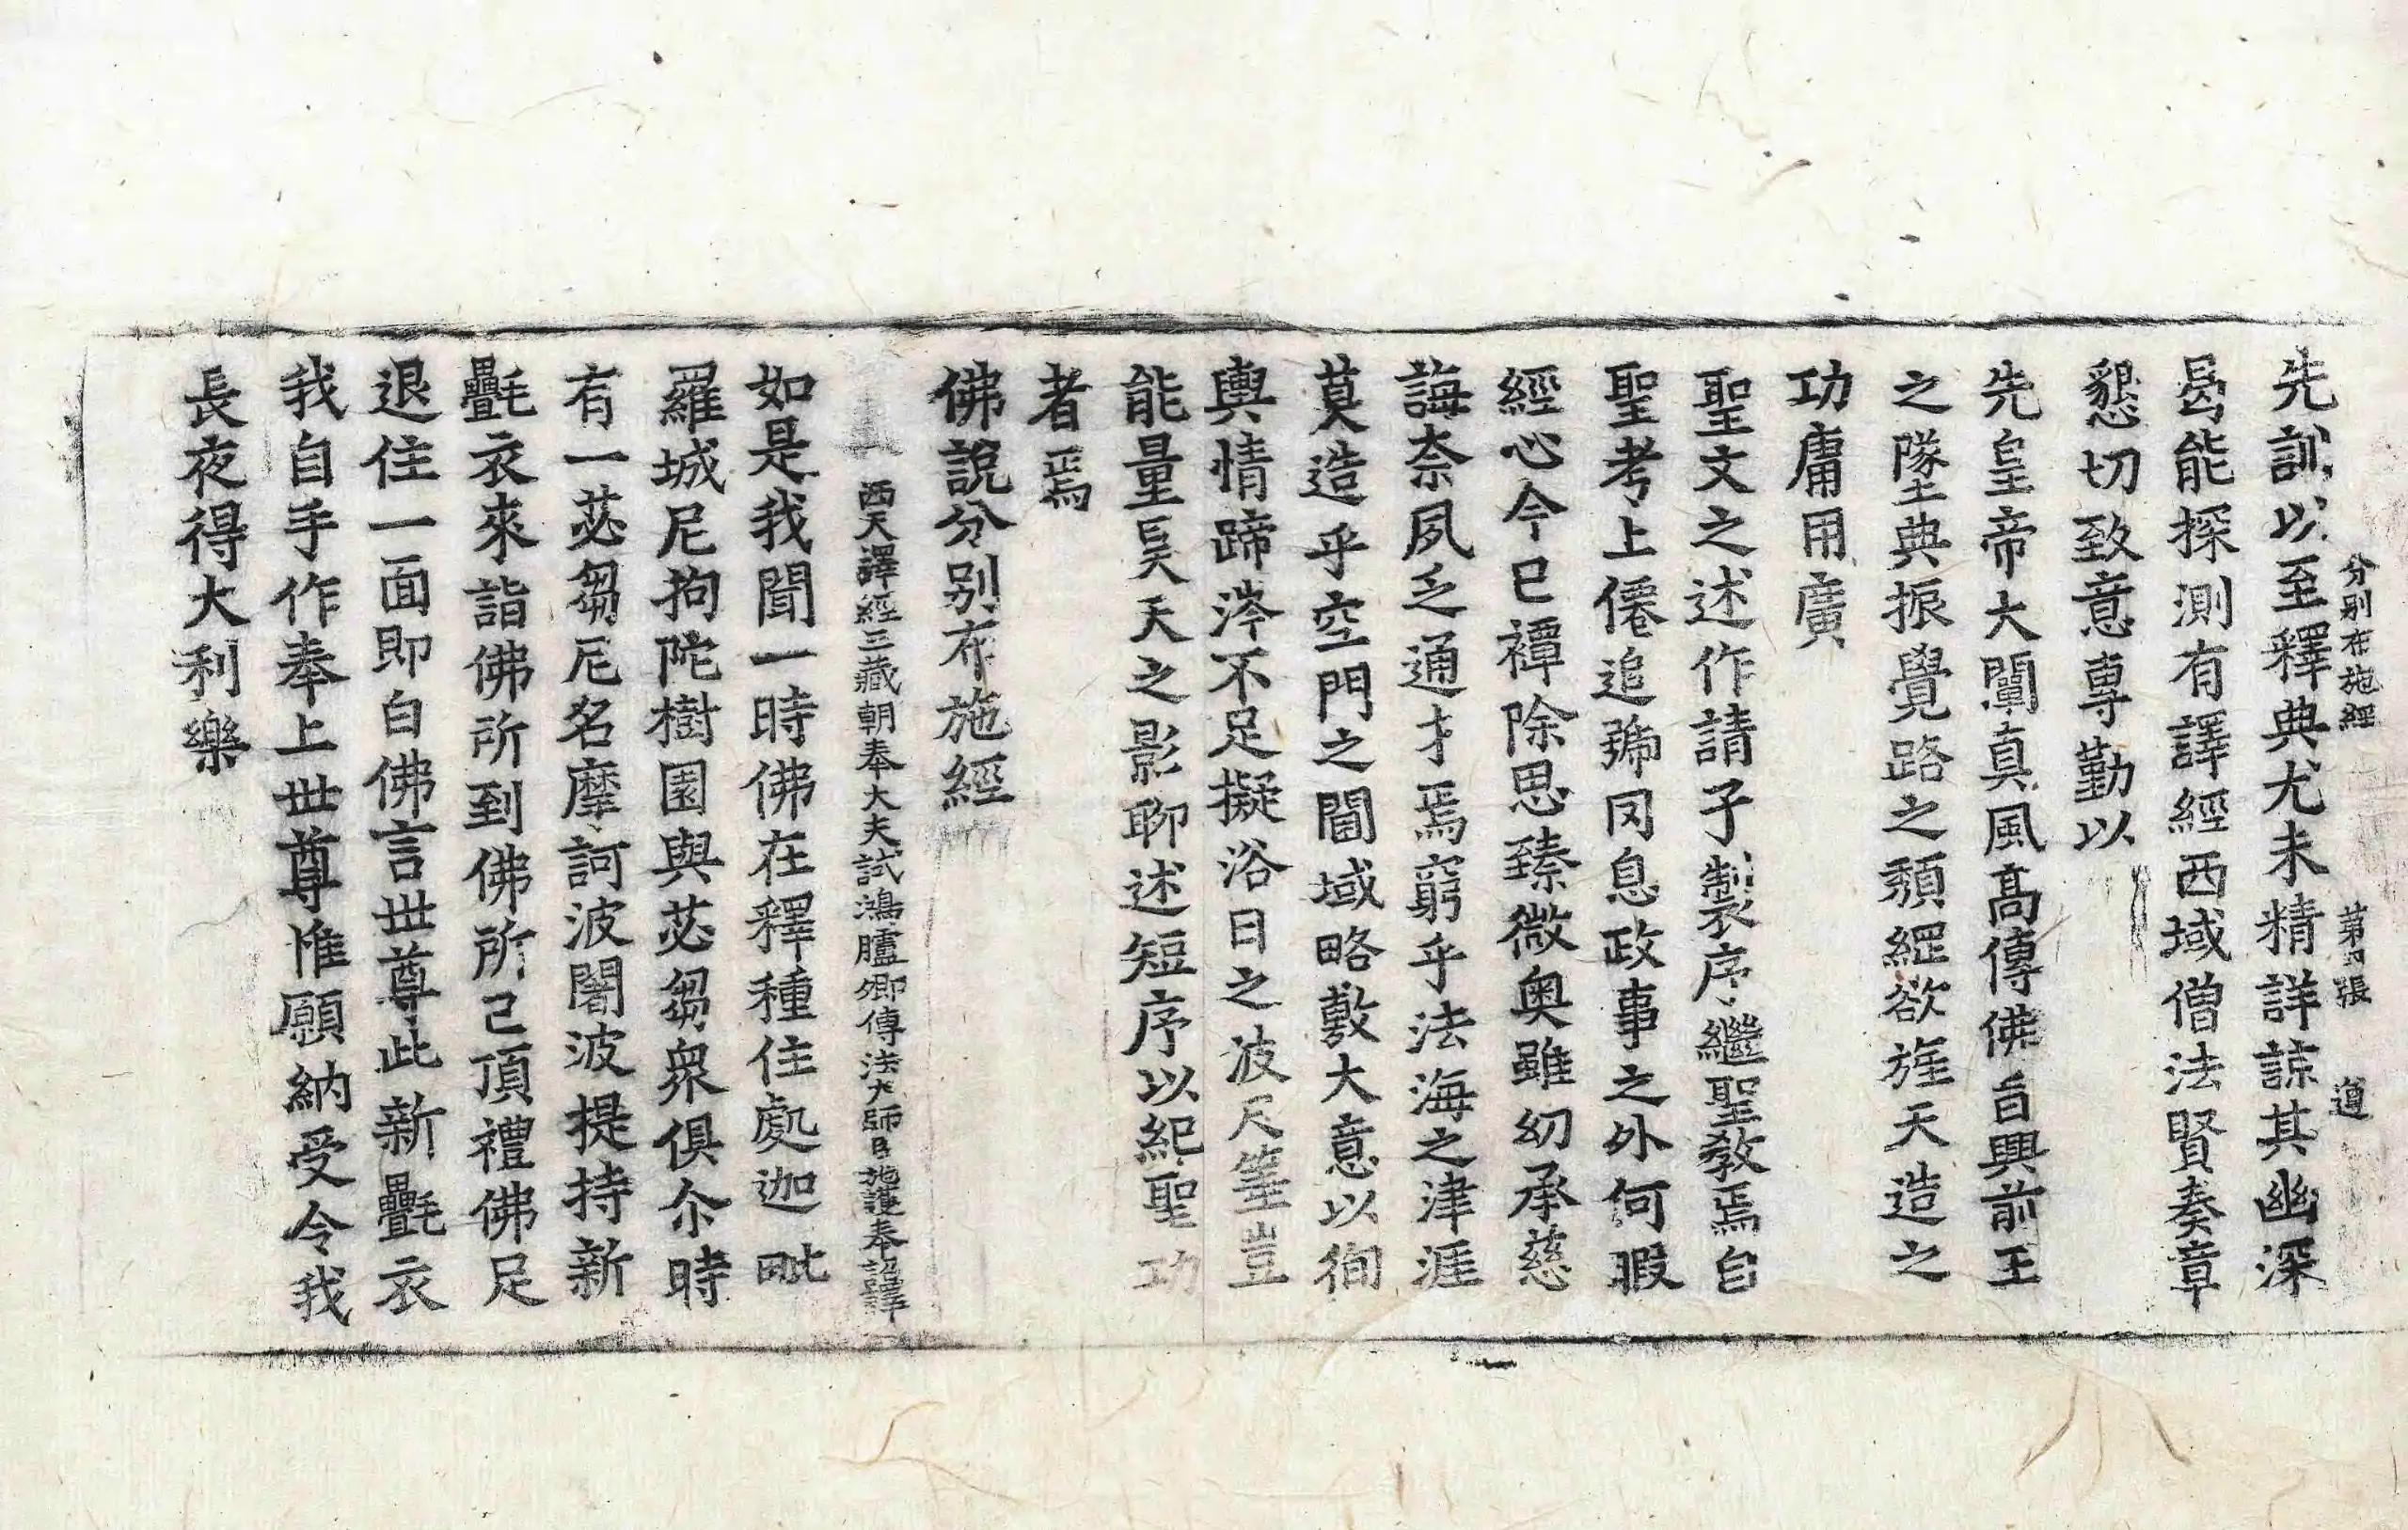 分別布施經 第四張 逈
先訓以至釋典尤未精詳諒其幽深
曷能探測有譯經西域僧法賢奏章
懇切致意專勤以
先皇帝大闡真風高傳佛旨興前王
之墜典振覺路之頹綱欲旌天造之
功庸用廣
聖文之述作請予製序繼聖教焉自
聖考上僊追號罔息政事之外何暇
經心今已禫除思臻微奧雖幼承慈
誨奈夙乏通才焉窮乎法海之津涯
莫造乎空門之閫域略敷大意以徇
輿情蹄涔不足擬浴日之波尺箠豈
能量昊天之影聊述短序以紀聖功
者焉
佛說分別布施經
西天譯經三藏朝奉大夫試鴻臚卿傳法大師臣施護奉詔譯
如是我聞一時佛在釋種住處迦毗
羅城尼拘陀樹園與苾芻衆俱尒時
有一苾芻尼名摩訶波闍波提持新
㲲衣來詣佛所到佛所已頂禮佛足
退住一面即白佛言世尊此新㲲衣
我自手作奉上世尊惟願納受令我
長夜得大利樂